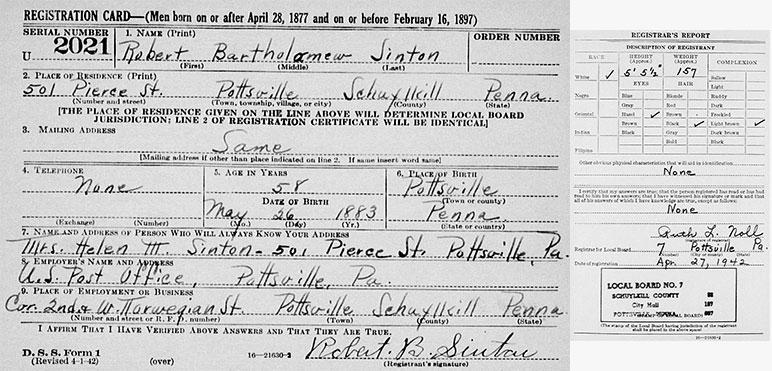 REGISTRATION CARD—(Men born on or after April 28, 1877 and on or before February 16, 1897)
SERIAL NUMBER
U 2021
1. NAME (Print)
Robert Bartholomew Sinton
(First) (Middle) (Last)
ORDER NUMBER
2. PLACE OF RESIDENCE (Print)
501 Pierce St. Pottsville Schuylkill Penna
(Number and street) (Town, township, village, or city) (County) (State)
[THE PLACE OF RESIDENCE GIVEN ON THE LINE ABOVE WILL DETERMINE LOCAL BOARD
JURISDICTION; LINE 2 OF REGISTRATION CERTIFICATE WILL BE IDENTICAL]
3. MAILING ADDRESS
Same
[Mailing address if other than place indicated on line 2. If same insert word same]
4. TELEPHONE
None
(Exchange) (Number)
5. AGE IN YEARS
58
DATE OF BIRTH
May 26 1883
(Mo.) (Day) (Yr.)
6. PLACE OF BIRTH
Pottsville
(Town or county)
Penna
(State or country)
7. NAME AND ADDRESS OF PERSON WHO WILL ALWAYS KNOW YOUR ADDRESS
Mrs. Helen M. Sinton - 501 Pierce St. Pottsville, Pa.
8. EMPLOYER'S NAME AND ADDRESS
U.S. Post Office, Pottsville, Pa.
9. PLACE OF EMPLOYMENT OR BUSINESS
Cor. 2nd & W. Norwegian St. Pottsville Schuylkill Penna
(Number and street or R. F. D. number) (Town) (County) (State)
I AFFIRM THAT I HAVE VERIFIED ABOVE ANSWERS AND THAT THEY ARE TRUE.
D. S. S. Form 1
(Revised 4-1-42) (over) 16—21630-2
Robert B. Sinton
(Registrant's signature)
REGISTRAR'S REPORT
DESCRIPTION OF REGISTRANT
RACE
HEIGHT (Approx.)
WEIGHT (Approx.)
COMPLEXION
White ✓ 5' 5½" 157 Sallow
EYES HAIR Light
Negro Blue Blonde Ruddy
Gray Red Dark
Oriental Hazel ✓ Brown Freckled
Brown Black ✓ Light brown ✓
Indian Black Gray Dark brown
Bald Black
Filipino
Other obvious physical characteristics that will aid in identification
None
I certify that my answers are true; that the person registered has read or has had
read to him his own answers; that I have witnessed his signature or mark and that
all of his answers of which I have knowledge are true, except as follows:
None
Ruth L. Noll
Registrar for Local Board 7 Pottsville Pa.
Date of registration Apr. 27, 1942
LOCAL BOARD NO. 7
SCHUYLKILL COUNTY
City Hall
POTTSVILLE, PENNA.
(The stamp of the Local Board having jurisdiction of the registrant
shall be placed in the above space)
16—21630-2